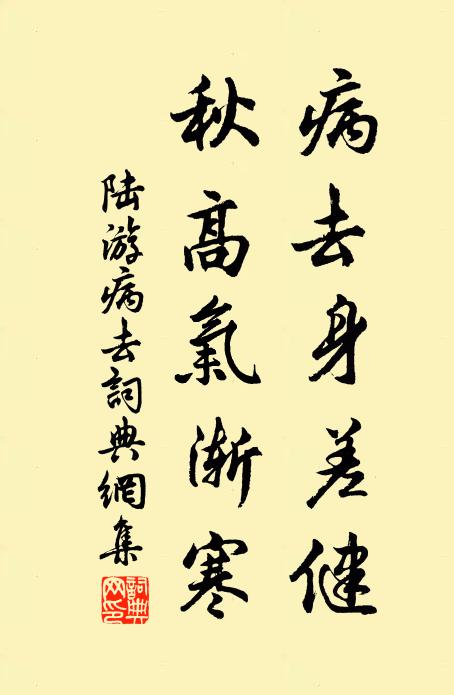 病去身差健
秋高氣渐寒
陆游病去詞典網集
詞典網印